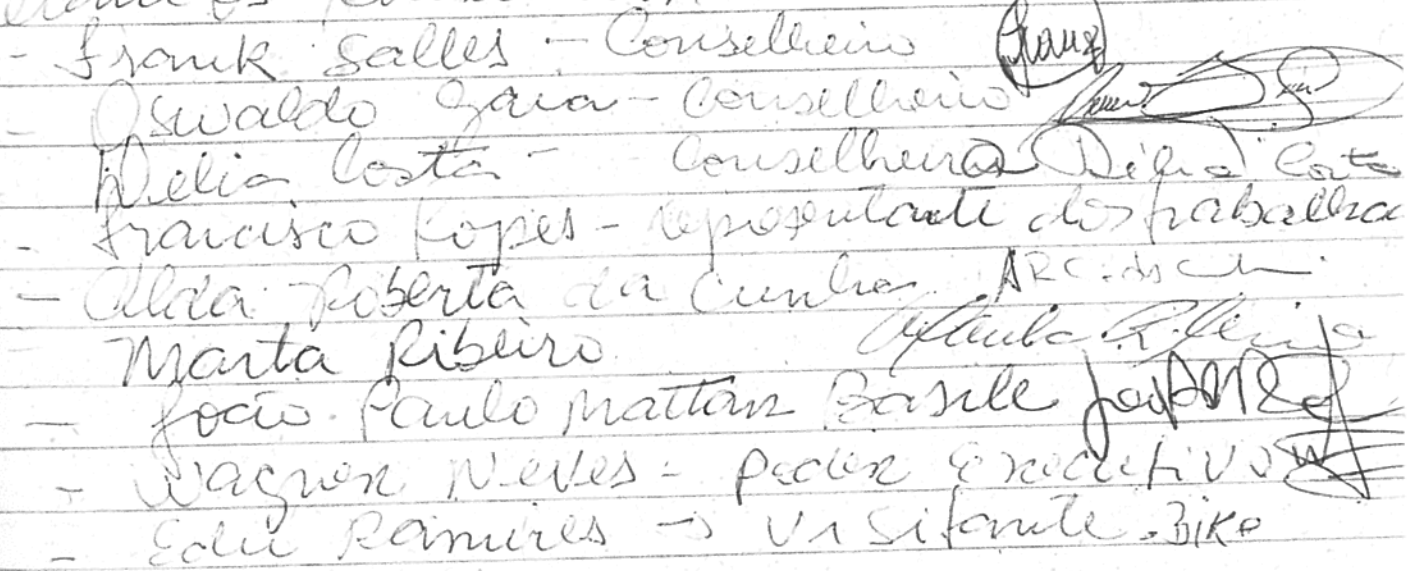 - Frank Salles - Conselheiro
- Oswaldo Gaia - Conselheiro
Délia Costa - Conselheira Délia Costa
- Francisco Lopes - representante dos trabalha
- Alda Roberta da Cunha ARC. da
Marta Ribeiro
- João Paulo Mattar Basile
- Wagner Neves - Poder Executivo
- Edu Ramires → Visitante . Bike